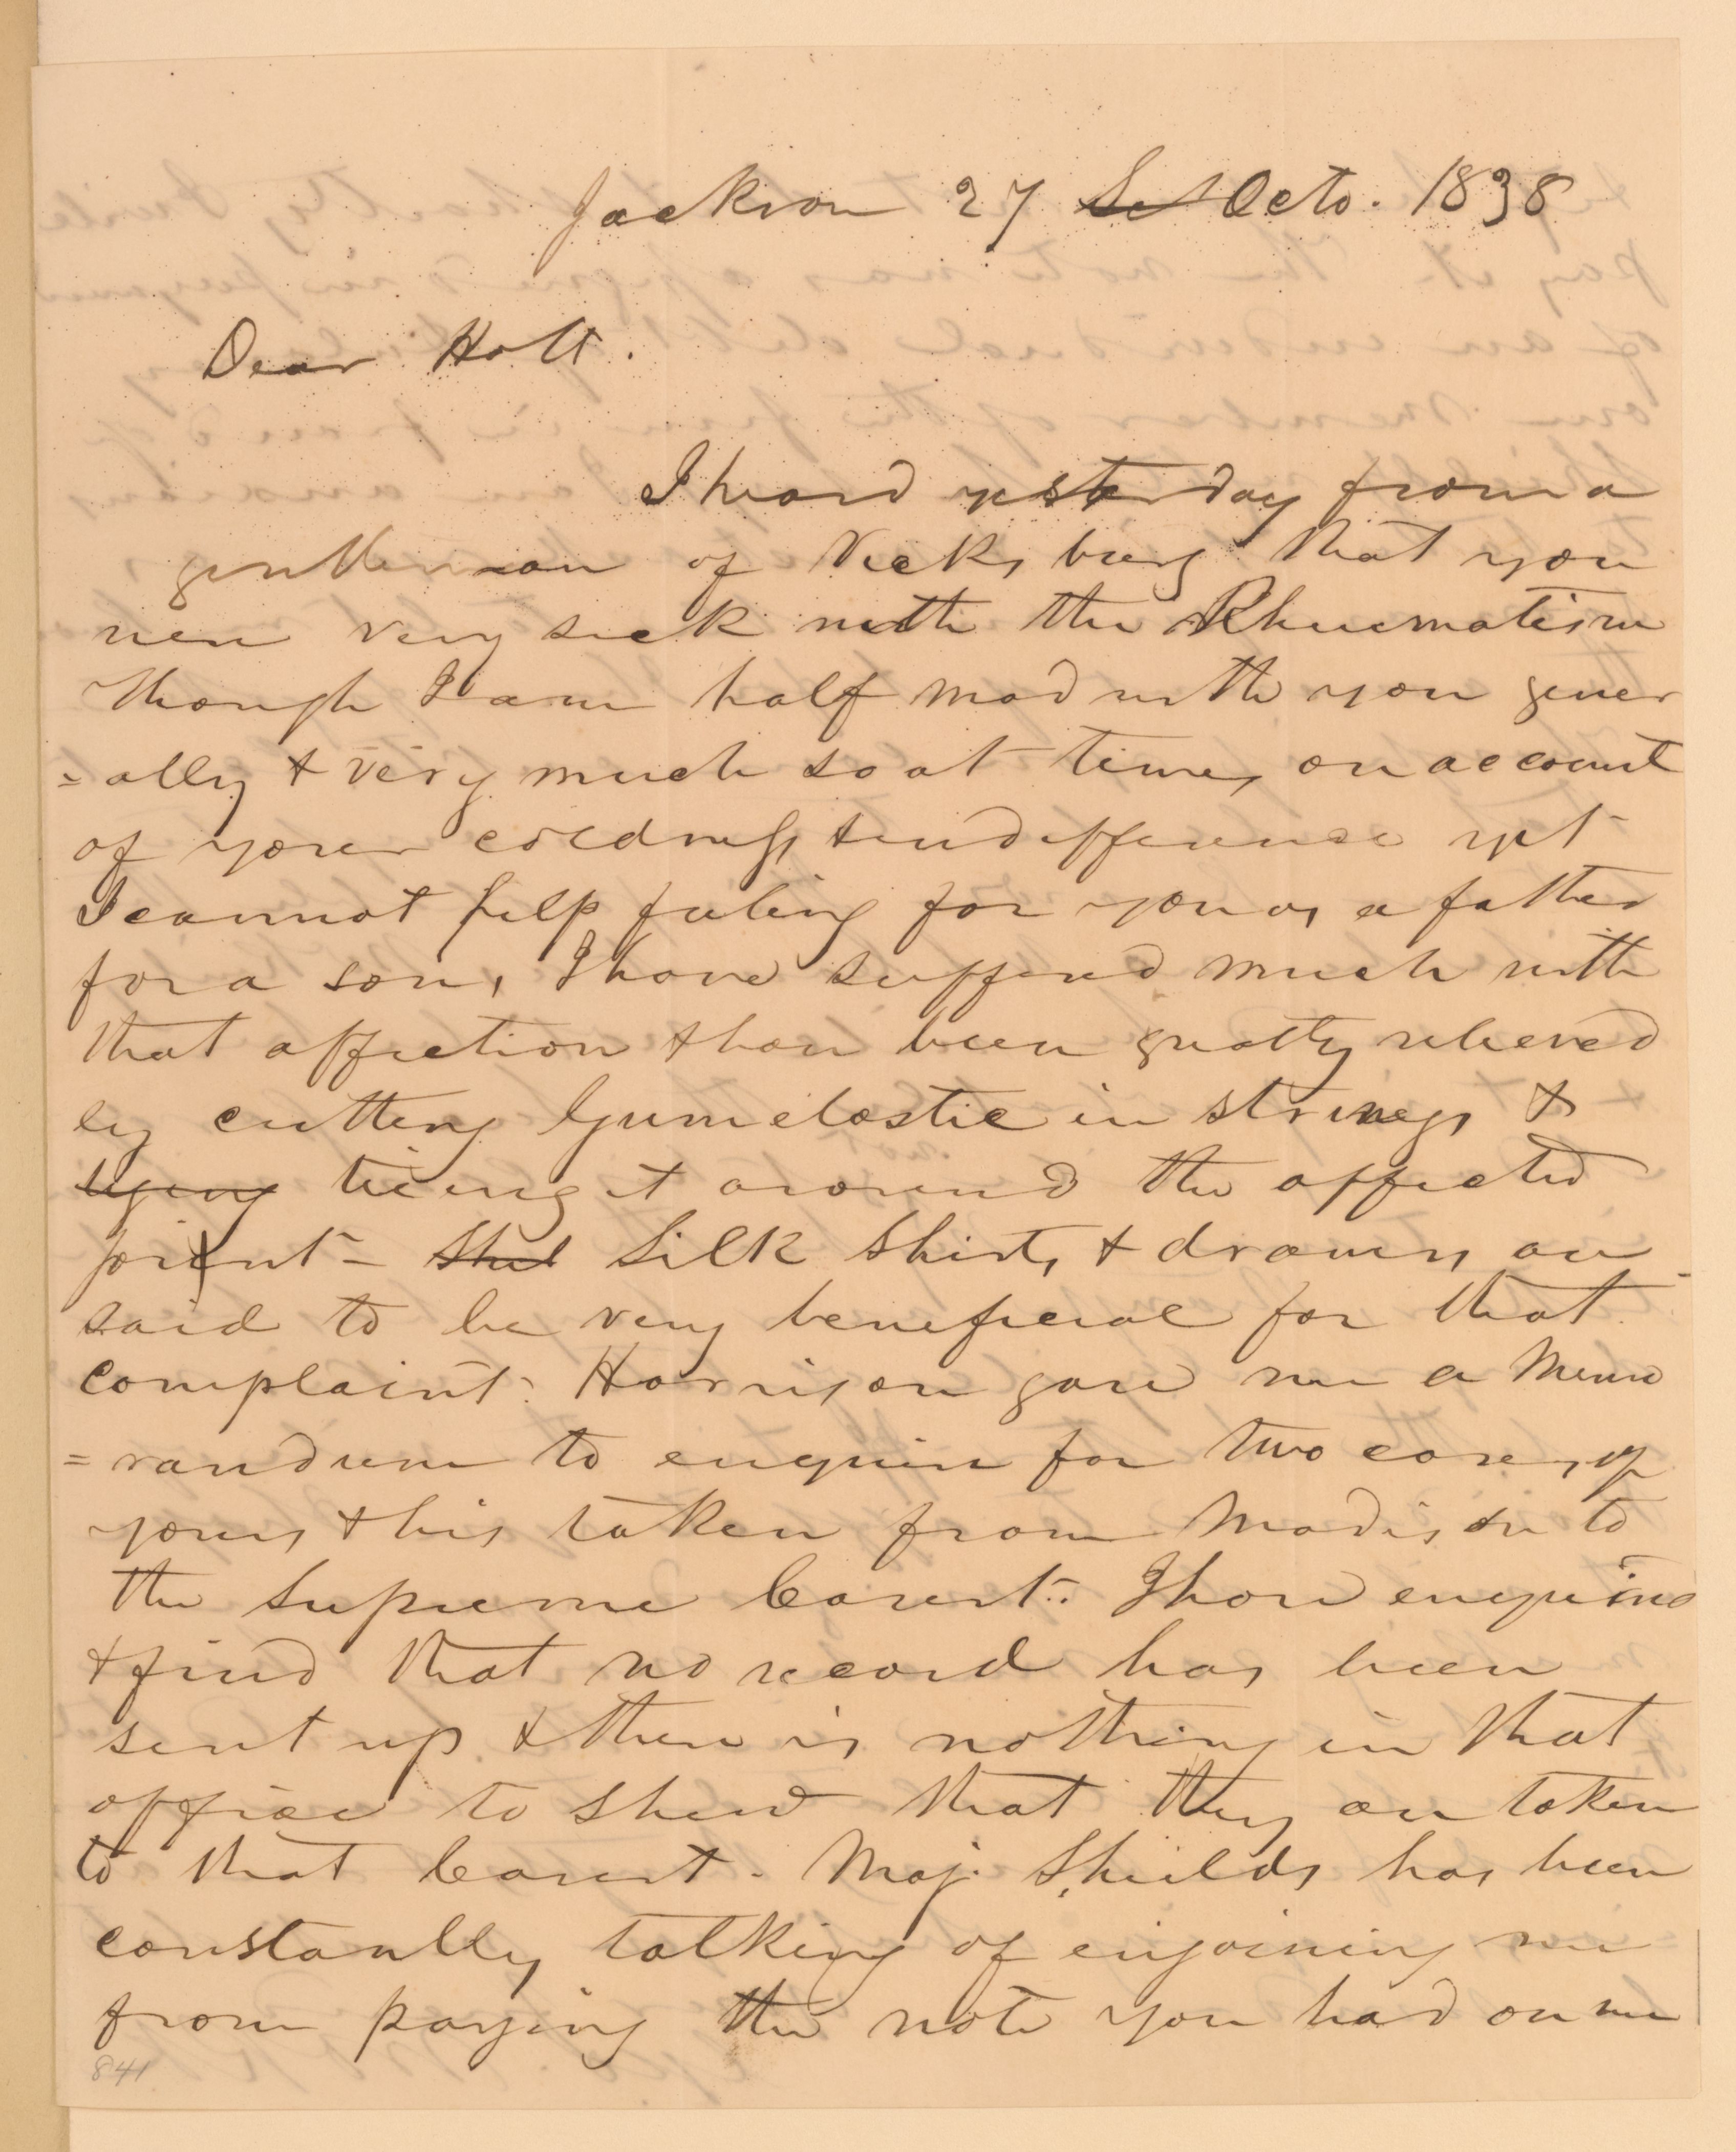 Jackson 27 Se Octo. 1838
Dear Holt.
I heard yesterday from a
gentleman of Vicksburg that you
were very sick with the Rheumatism
though I am half mad with you gener
=ally & very much so at times on account
of your coldness & indifference yet
I cannot help feeling for you as a father
for a son, I have suffered much with
that affection & have been greatly relieved
by cutting Gumelastic in strings &
tyeing tieing it around the affected
joint - Silk Shirts & drawers are
said to be very beneficial for that
complaint. Harrison gave me a Memo
=randum to enquire for two cases of
yours & his taken from Madison to
the Supreme Court. I have enquired
& find that no record has been
sent up & there is nothing in that
office to shew that they are taken
to that Court. Maj. Shields has been
constantly talking of enjoining me
from paying the note you had on me
841